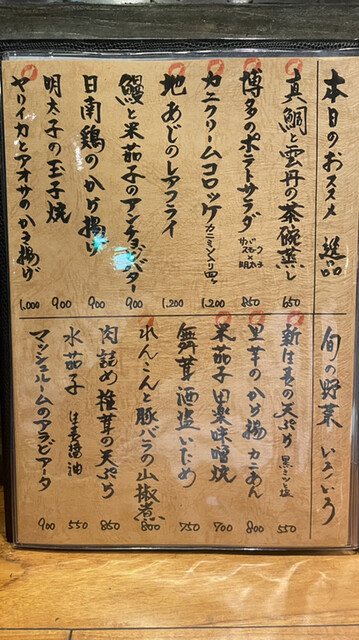 本日のおススメ 逸品
真鯛と雲丹の茶碗蒸し 650
博多のポテトサラダ サバスモーク×明太子 850
カニクリームコロッケ カニミソ入り四ヶ 1,200
地あじのレアフライ 1,200
鰻と米茄子のアンチョビバター 900
日南鶏のかき揚げ 900
明太子の玉子焼 900
ヤリイカとアオサのかき揚げ 1,000
旬の野菜 いろいろ
新生姜の天ぷら 黒こしょう塩 550
里芋のから揚 カニあん 800
米茄子田楽味噌焼 700
舞茸酒盗いため 750
れんこんと豚バラの山椒煮 800
肉詰め椎茸の天ぷら 850
水茄子 生姜醤油 550
マッシュルームのアラビアータ 900